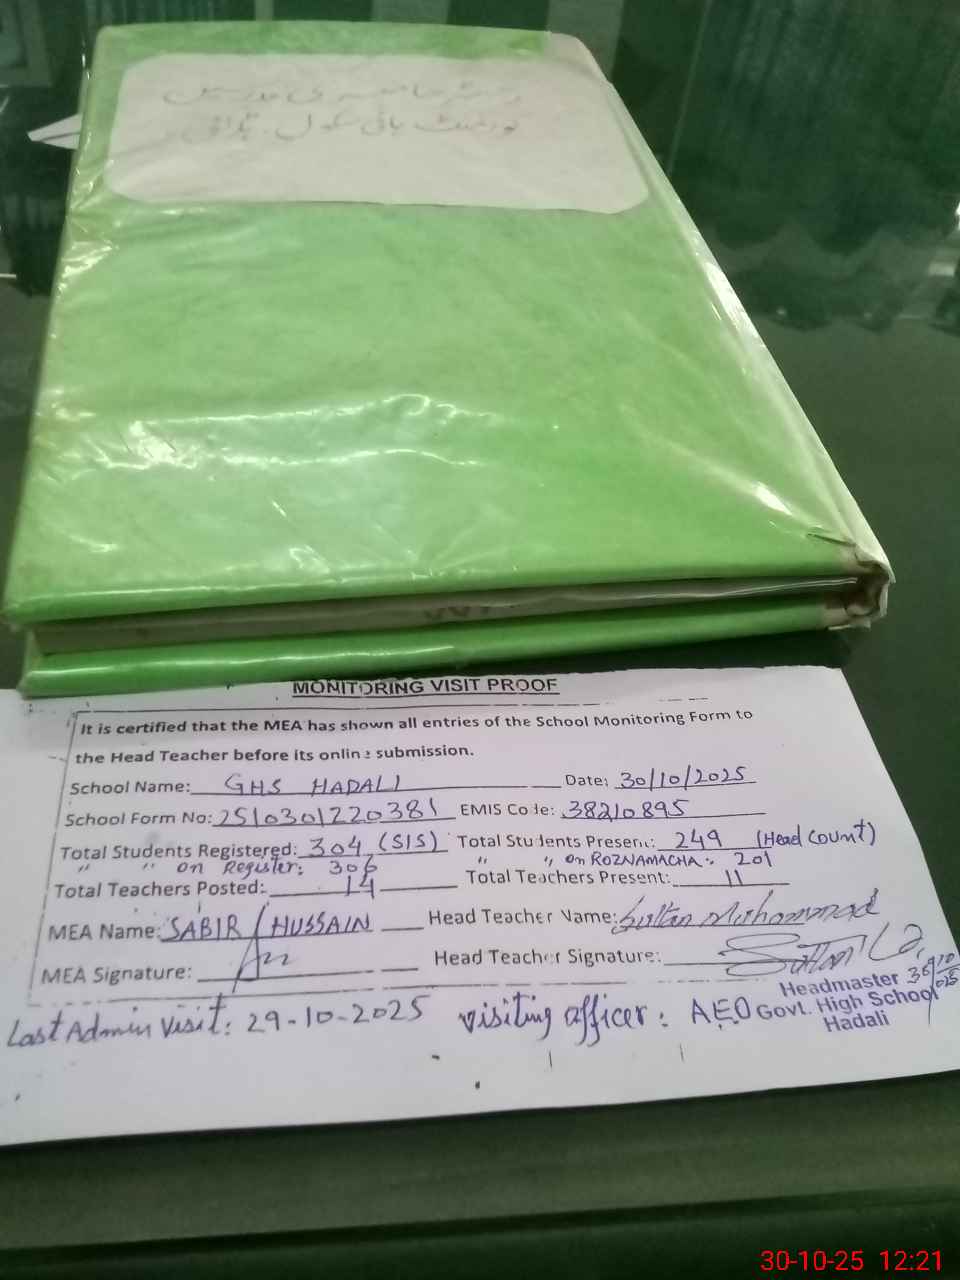 رجسٹر حاضری مدرسین
گورنمنٹ ہائی سکول ہڈالی
MONITORING VISIT PROOF
It is certified that the MEA has shown all entries of the School Monitoring Form to
the Head Teacher before its online submission.
School Name: GHS HADALI Date: 30/10/2025
School Form No: 2510301220381 EMIS Code: 38210895
Total Students Registered: 304 (SIS) Total Students Present: 249 (Head Count)
" " on Register: 306 " " on ROZNAMACHA: 201
Total Teachers Posted: 14 Total Teachers Present: 11
MEA Name: SABIR HUSSAIN Head Teacher Name: Sultan Muhammad
MEA Signature: Head Teacher Signature:
Headmaster
Govt. High School
Hadali
Last Admin Visit: 29-10-2025 visiting officer: AEO
30-10-25 12:21